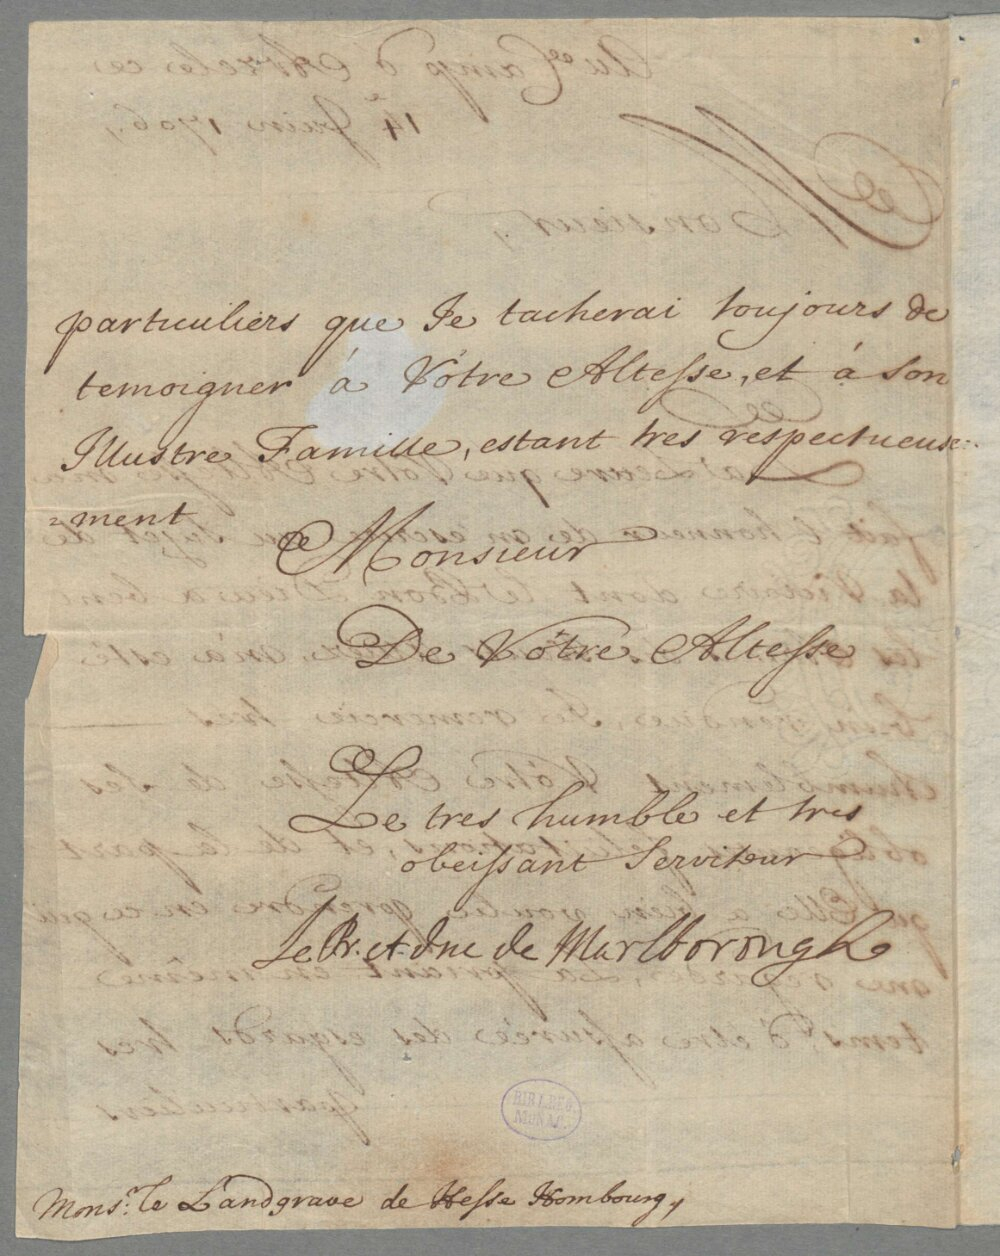 particuliers que Je tacherai toujours de
temoigner à Vôtre Altesse, et à son
Illustre Famille, estant tres respectueuse=
=ment
Monsieur
De Vôtre Altesse
Le tres humble et tres
obeissant Serviteur
Le Pr. et duc de Marlborough
BIBL. REG.
MONAC.
Monsr. le Landgrave de Hesse Hombourg,